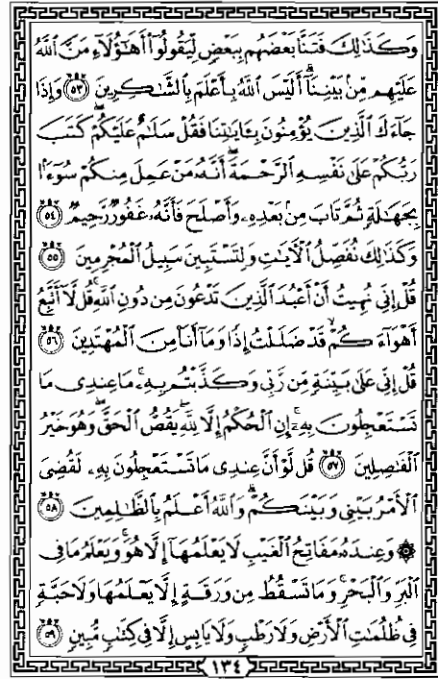 وَكَذَٰلِكَ فَتَنَّا بَعْضَهُم بِبَعْضٍ لِّيَقُولُوٓا۟ أَهَٰٓؤُلَآءِ مَنَّ ٱللَّهُ
عَلَيْهِم مِّنۢ بَيْنِنَآ ۗ أَلَيْسَ ٱللَّهُ بِأَعْلَمَ بِٱلشَّٰكِرِينَ ٥٣ وَإِذَا
جَآءَكَ ٱلَّذِينَ يُؤْمِنُونَ بِـَٔايَٰتِنَا فَقُلْ سَلَٰمٌ عَلَيْكُمْ ۖ كَتَبَ
رَبُّكُمْ عَلَىٰ نَفْسِهِ ٱلرَّحْمَةَ ۖ أَنَّهُۥ مَنْ عَمِلَ مِنكُمْ سُوٓءًۢا
بِجَهَٰلَةٍ ثُمَّ تَابَ مِنۢ بَعْدِهِۦ وَأَصْلَحَ فَأَنَّهُۥ غَفُورٌ رَّحِيمٌ ٥٤
وَكَذَٰلِكَ نُفَصِّلُ ٱلْـَٔايَٰتِ وَلِتَسْتَبِينَ سَبِيلُ ٱلْمُجْرِمِينَ ٥٥
قُلْ إِنِّى نُهِيتُ أَنْ أَعْبُدَ ٱلَّذِينَ تَدْعُونَ مِن دُونِ ٱللَّهِ ۚ قُل لَّآ أَتَّبِعُ
أَهْوَآءَكُمْ ۙ قَدْ ضَلَلْتُ إِذًا وَمَآ أَنَا۠ مِنَ ٱلْمُهْتَدِينَ ٥٦
قُلْ إِنِّى عَلَىٰ بَيِّنَةٍ مِّن رَّبِّى وَكَذَّبْتُم بِهِۦ ۚ مَا عِندِى مَا
تَسْتَعْجِلُونَ بِهِۦٓ ۚ إِنِ ٱلْحُكْمُ إِلَّا لِلَّهِ ۖ يَقُصُّ ٱلْحَقَّ ۖ وَهُوَ خَيْرُ
ٱلْفَٰصِلِينَ ٥٧ قُل لَّوْ أَنَّ عِندِى مَا تَسْتَعْجِلُونَ بِهِۦ لَقُضِىَ
ٱلْأَمْرُ بَيْنِى وَبَيْنَكُمْ ۗ وَٱللَّهُ أَعْلَمُ بِٱلظَّٰلِمِينَ ٥٨
۞ وَعِندَهُۥ مَفَاتِحُ ٱلْغَيْبِ لَا يَعْلَمُهَآ إِلَّا هُوَ ۚ وَيَعْلَمُ مَا فِى
ٱلْبَرِّ وَٱلْبَحْرِ ۚ وَمَا تَسْقُطُ مِن وَرَقَةٍ إِلَّا يَعْلَمُهَا وَلَا حَبَّةٍ
فِى ظُلُمَٰتِ ٱلْأَرْضِ وَلَا رَطْبٍ وَلَا يَابِسٍ إِلَّا فِى كِتَٰبٍ مُّبِينٍ ٥٩
١٣٤